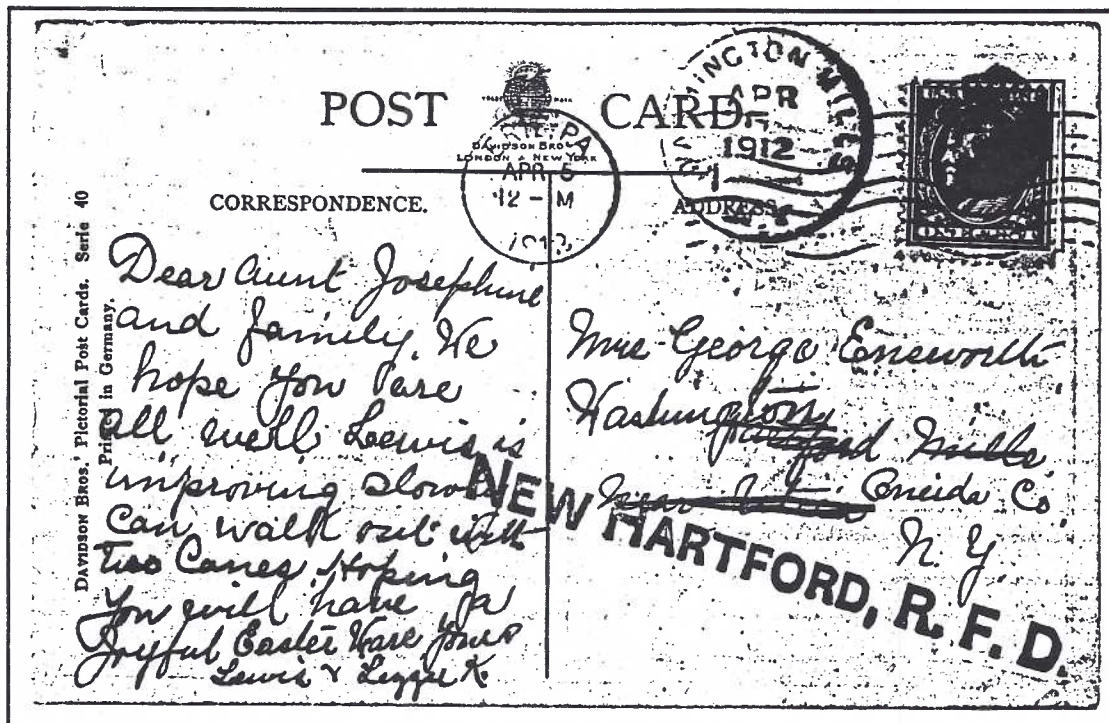 POST CARD
DAVIDSON BROS
LONDON & NEW YORK
PA
APR 5
12 - M
INGTON MILLS
APR
1912
CORRESPONDENCE.
ADDRESS
ONE CENT
DAVIDSON BROS.' Pictorial Post Cards. Serie 40
Printed in Germany.
Dear Aunt Josephine
and family. We
hope you are
all well. Lewis is
improving slowly
can walk out with
two Canes. Hoping
you will have a
Joyful Easter
Lewis & Lizzie K.
Mrs George Ensworth
Washington
Mills
Oneida Co
N. Y.
NEW HARTFORD, R. F. D.